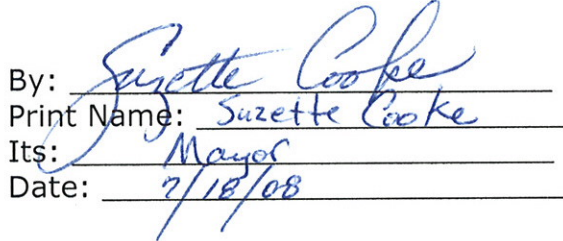 By: Suzette Cooke
Print Name: Suzette Cooke
Its: Mayor
Date: 7/18/08